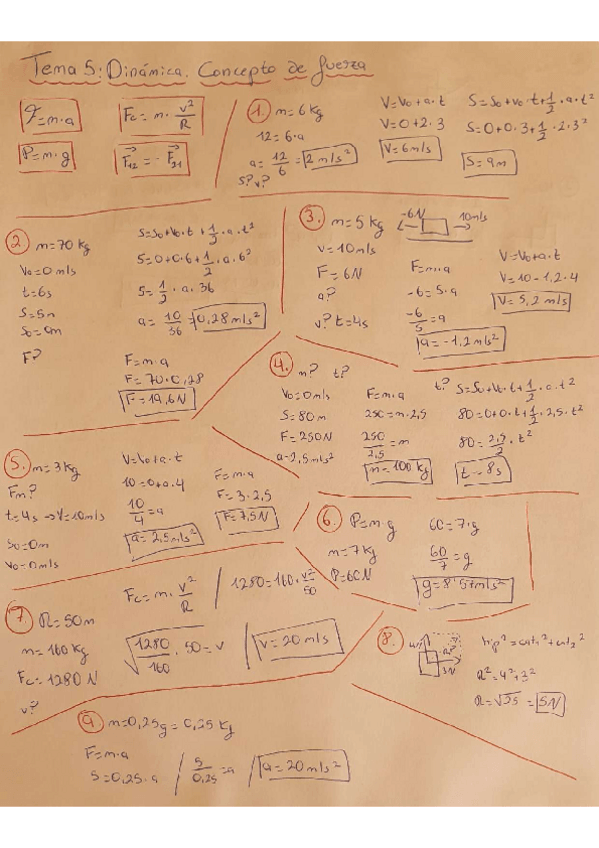 Tema 5: Dinámica. Concepto de fuerza
F=m·a
Fc = m · v²/R
P=m·g
F12 = - F21
1. m=6 kg
12=6·a
a= 12/6 = 2 m/s²
s? v?
V=Vo+a·t
V=0+2·3
V=6m/s
S=So+Vo·t+1/2·a·t²
S=0+0·3+1/2·2·3²
S=9m
2 m=70 kg
Vo=0 m/s
t=6s
S=5m
So=0m
F?
S=So+Vo·t+1/2·a·t²
5=0+0·6+1/2·a·6²
5=1/2·a·36
a= 10/36 = 0,28 m/s²
F=m·a
F=70·0,28
F=19,6N
3. m=5 kg
-6N
10m/s
V=10m/s
F=6N
a?
v? t=4s
F=m·a
-6=5·a
-6/5 = a
a=-1,2 m/s²
V=Vo+a·t
V=10-1,2·4
V=5,2 m/s
4. m? t?
Vo=0m/s
S=80m
F=250N
a=2,5m/s²
F=m·a
250=m·2,5
250/2,5 = m
m=100 kg
t? S=So+Vo·t+1/2·a·t²
80=0+0·t+1/2·2,5·t²
80= 2,5/2 · t²
t=8s
5. m=3kg
Fm?
t=4s → V=10m/s
So=0m
Vo=0m/s
V=Vo+a·t
10=0+a·4
10/4 = a
a=2,5m/s²
F=m·a
F=3·2,5
F=7,5N
6. P=m·g
m=7kg
P=60N
60=7·g
60/7 = g
g=8'57m/s²
7 R=50m
m=160 kg
Fc=1280 N
v?
Fc=m· v²/R
1280=160· v²/50
√1280/160 · 50 = v
V=20 m/s
8.
3N
hip²=cat1²+cat2²
R²=4²+3²
R=√25 = 5N
9. m=0,25g=0,25 kg
F=m·a
5=0,25·a
5/0,25 = a
a=20 m/s²